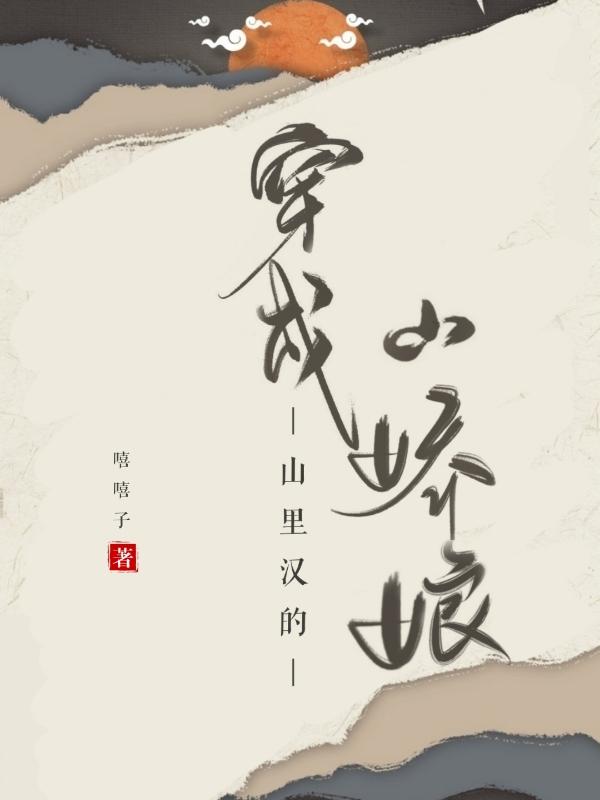 穿成
山里汉的
小娇娘
嘻嘻子
著